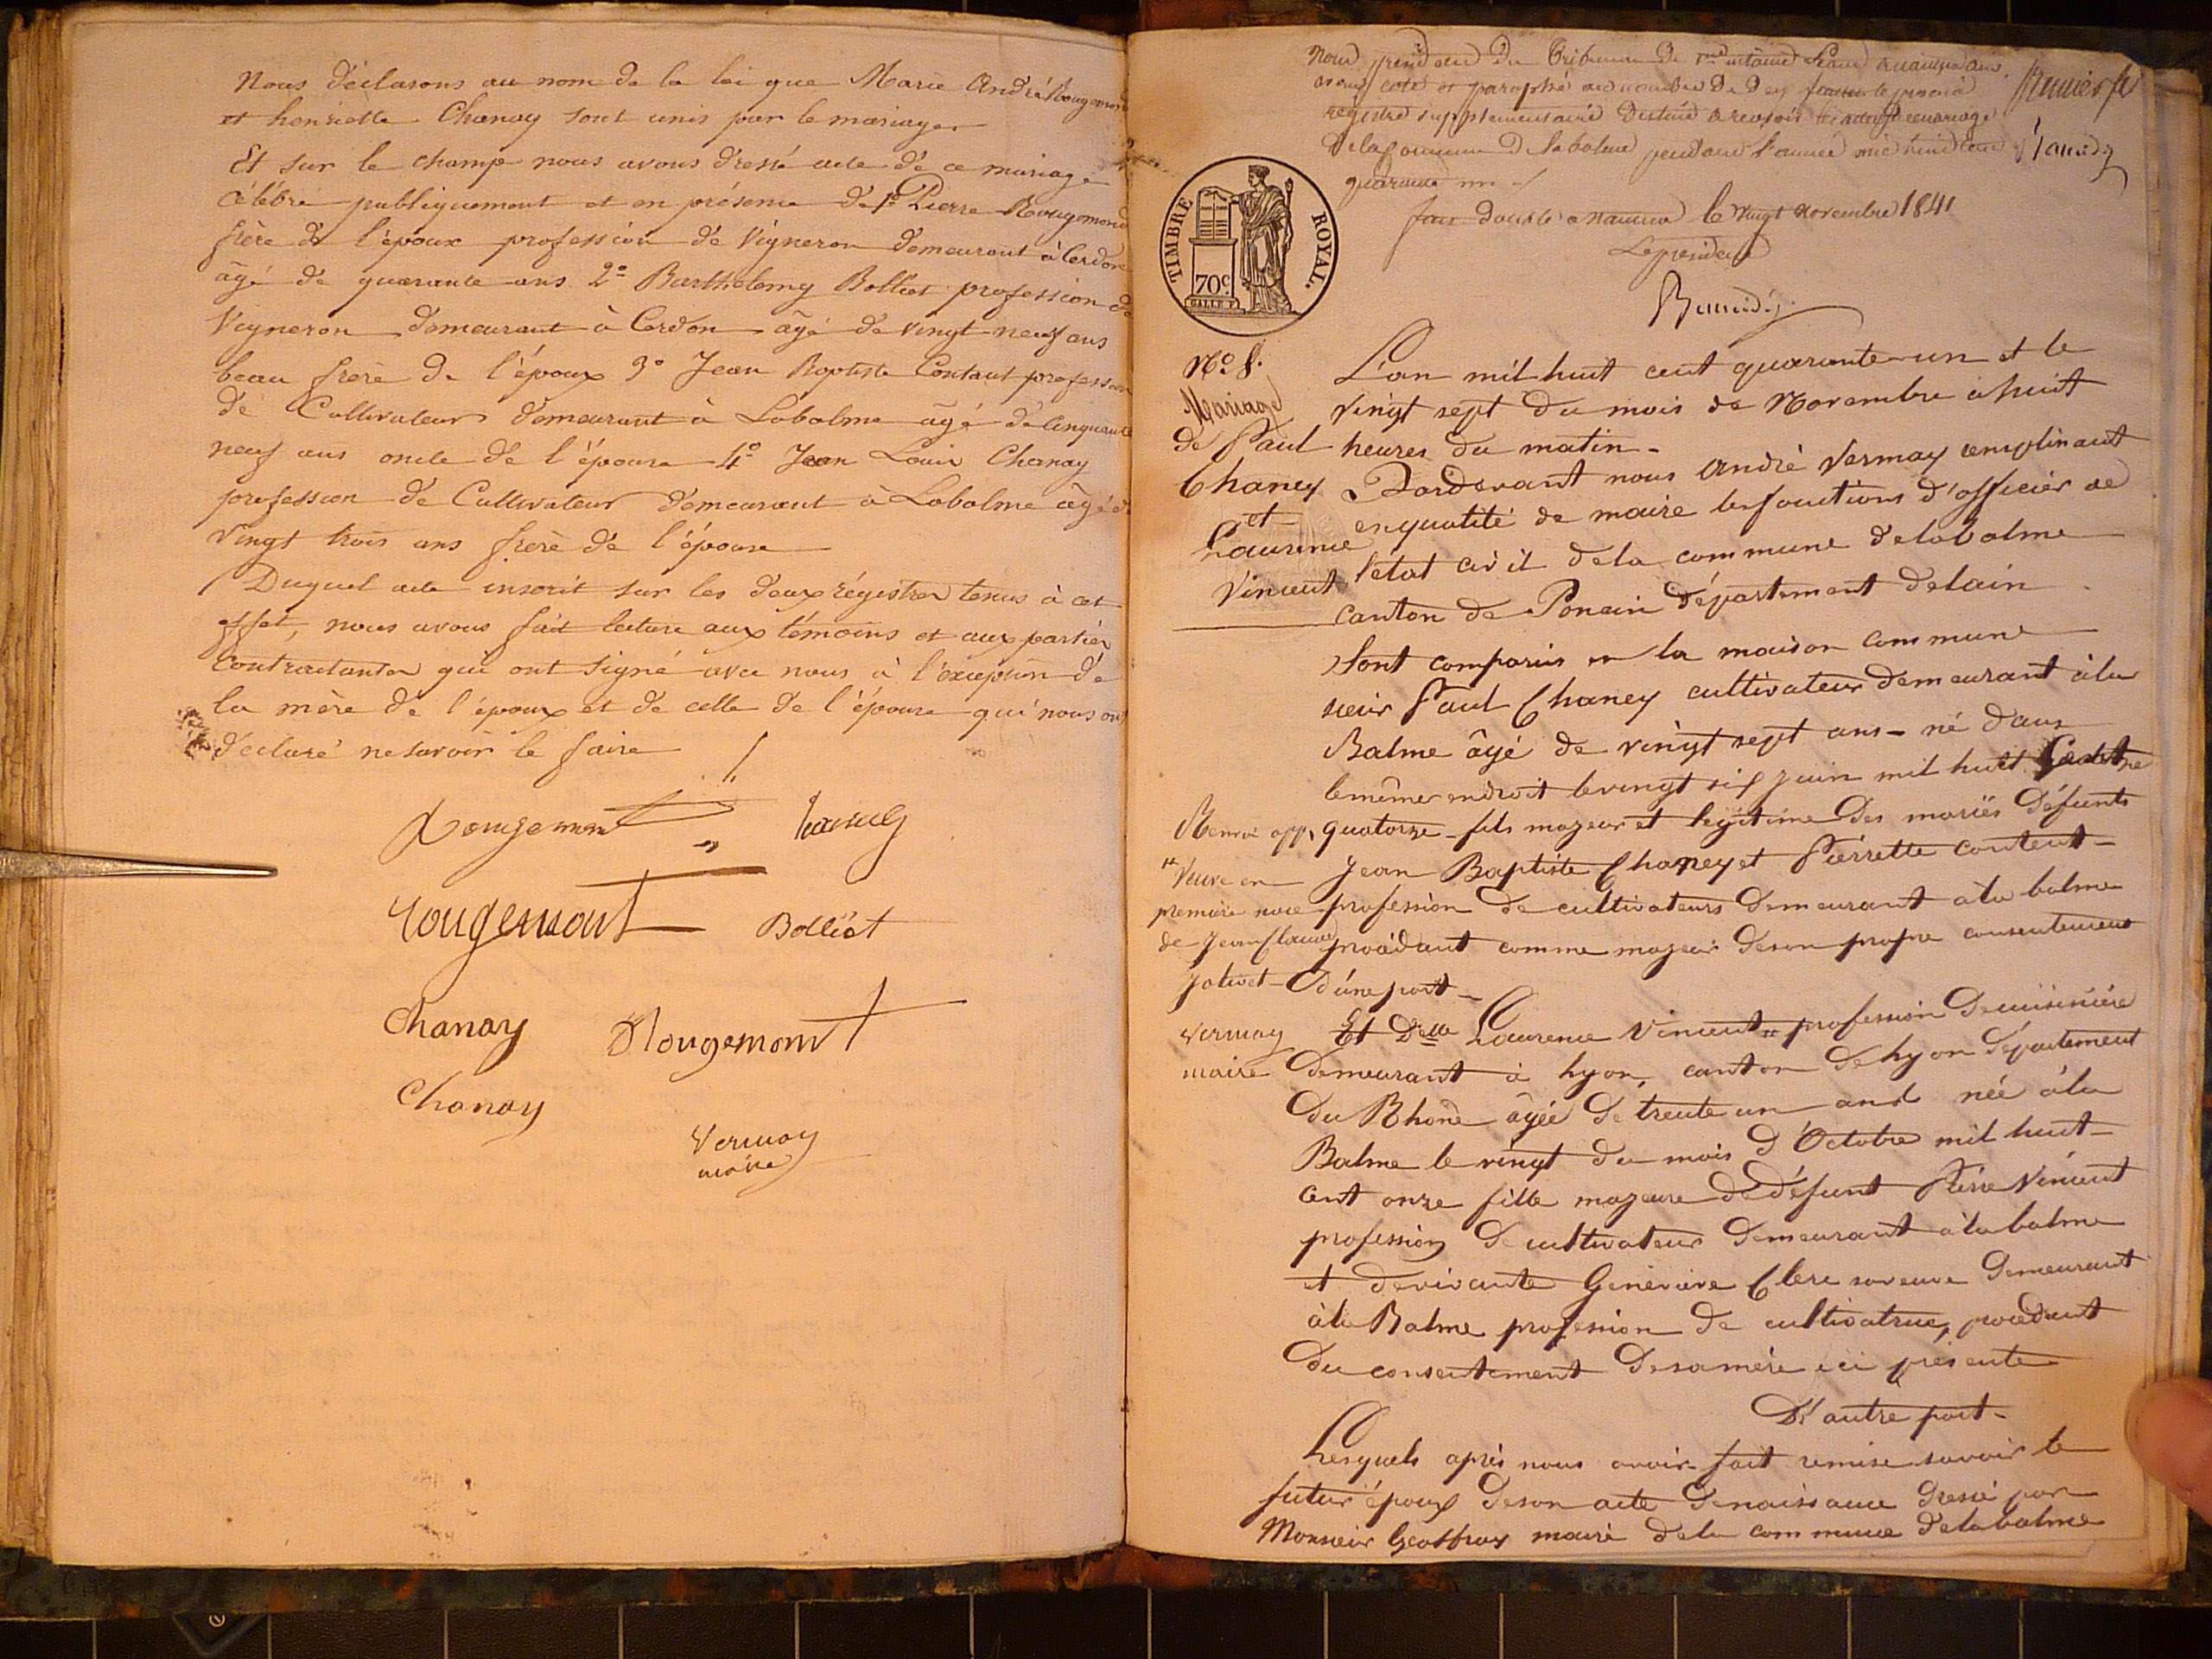 Nous déclarons au nom de la loi que Marie André Rougemont
et henriette Chanay sont unis par le mariage.
Et sur le champ nous avons dressé acte de ce mariage
célébré publiquement et en présence de 1º Pierre Rougemond
frère de l'époux profession de Vigneron demeurant à Cerdon
âgé de quarante ans 2º Barthelemy Bolliet profession de
Vigneron demeurant à Cerdon âgé de vingt-neuf ans
beau frère de l'époux 3º Jean Baptiste Contant profession
de Cultivateur demeurant à Labalme âgé de Cinquante
neuf ans oncle de l'épouse 4º Jean Louis Chanay
profession de Cultivateur demeurant à Labalme âgé de
Vingt trois ans frère de l'épouse
Duquel acte inscrit sur les deux régistres tenus à cet
effet, nous avons fait lecture aux témoins et aux parties
Contractantes qui ont signé avec nous à l'éxception de
la mère de l'époux et de celle de l'épouse qui nous ont
declaré ne savoir le faire
Rougemont
Rougemont Bolliet
Chanay Rougemont
Chanay
Vermay
maire
Nous président du Tribunal de
avons coté et paraphé au nombre de Dix le présent
registre supplémentaire Destiné a recevoir les actes de mariage
De la Commune De labalme pendant l'année mil huit cent
quarante un
fait double a nantua le vingt novembre 1841
Le president
TIMBRE ROYAL.
70 C.
Nº 8.
Mariage
de Paul
Chaney
et
Laurence
Vincent
L'an mil huit cent quarante-un et le
vingt sept du mois de Novembre à huit
heures du matin.
Pardevant nous André Vermay remplissant
en qualité de maire les fonctions d'officier de
l'état civil de la commune de labalme
canton de Poncin département delain
Sont comparus en la maison commune
sieur Paul Chaney cultivateur demeurant à la
Balme âgé de vingt sept ans né dans
le même endroit le vingt six juin mil huit Cent
quatorze fils majeur et legitime Des mariés Défunts
Jean Baptiste Chaney et Pierrette Content
profession de cultivateurs Demeurant à la balme
procédant comme majeur de son propre consentement
D'une part
Renvoi app.
Veuve en
premiere noce
de Jean Claude
Jolivet
Vermay
maire
Et Delle Laurence Vincent profession De cuisinière
Demeurant à Lyon, canton de Lyon Département
Du Rhone âgée de trente un ans née à la
Balme le vingt du mois d'Octobre mil huit
cent onze fille majeure de défunt Pierre Vincent
profession De cultivateur Demeurant à la balme
et de vivante Geneviève Clerc sa veuve Demeurant
à la Balme profession De cultivatrice, procédant
Du consentement De sa mère ici présente
D'autre part
Lesquels après nous avoir fait remise savoir le
futur époux De son acte De naissance Dressé par
Monsieur maire de la commune de labalme